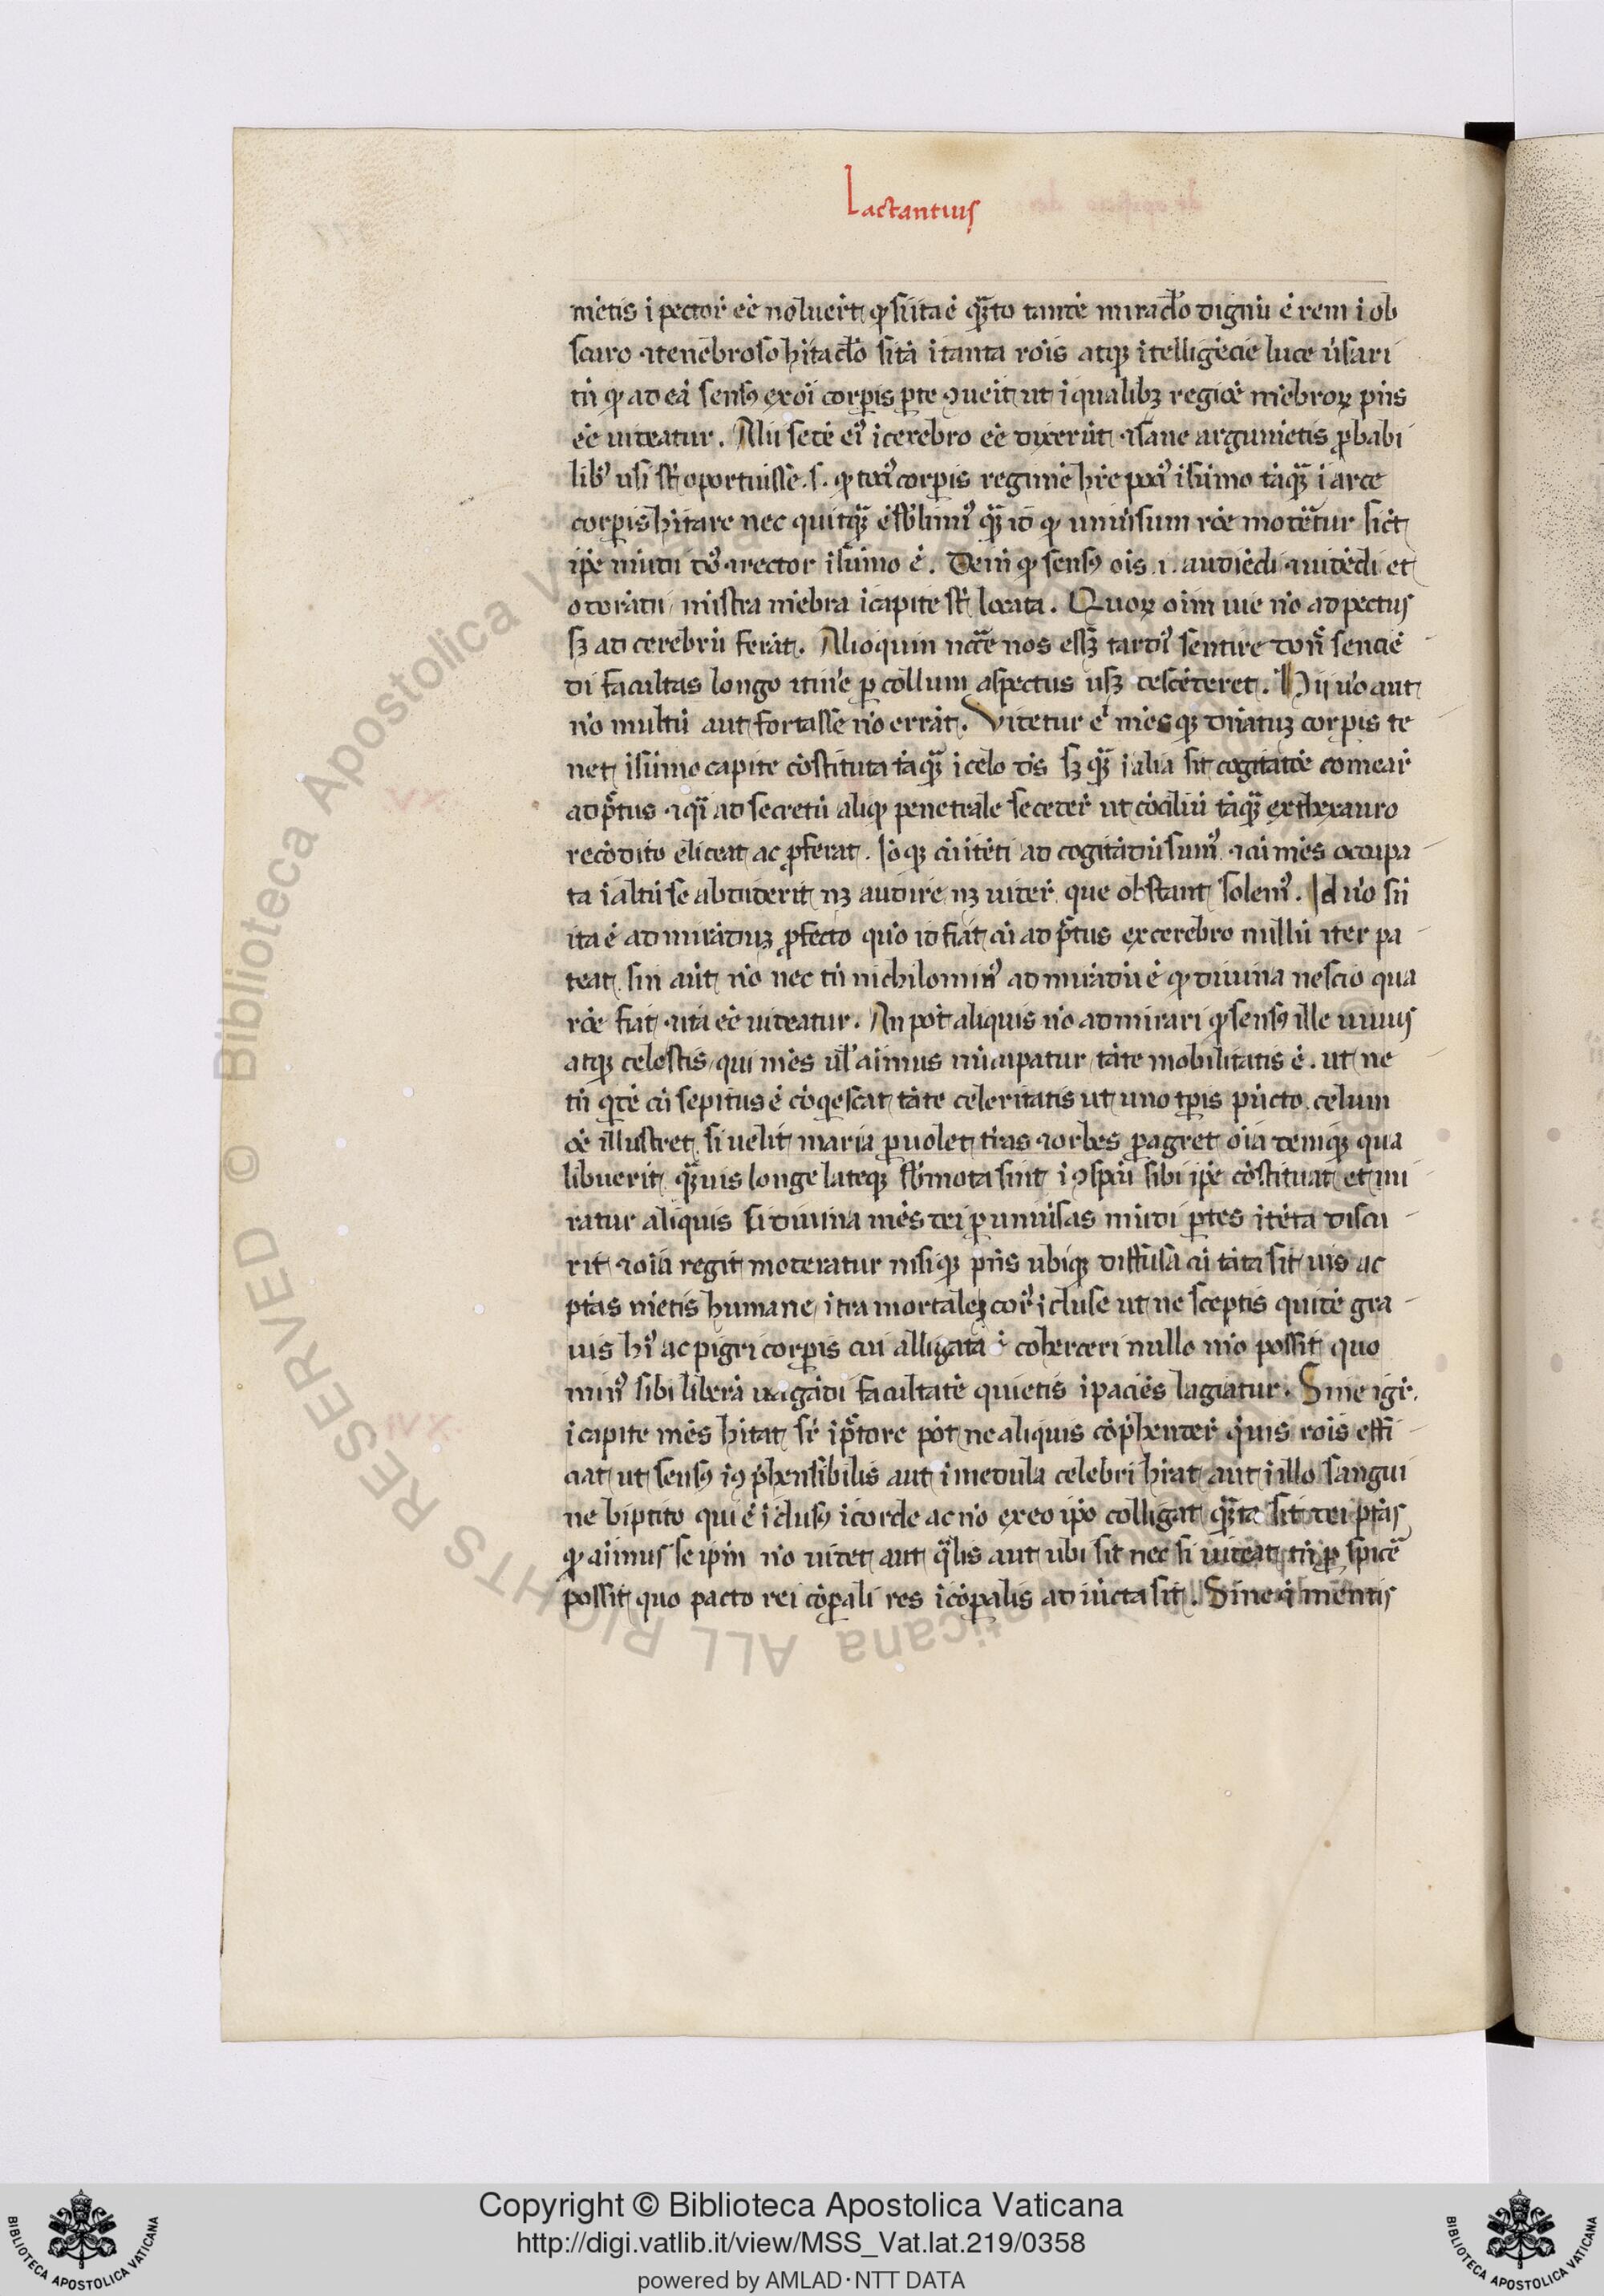 Lactantius
mētis ī pectorē eē noluerūt qđ si ita ē q̄to tandē miraclo dignū ē rem ī ob
scuro ⁊ tenebroso hītaclo sitā ī tanta rōis atqꝫ ītelligēcie luce ūsari
tū qđ ad eā sensꝰ ex oī corꝑis ꝑte ꝯueīt ut ī qualibꝫ regiōē mēbroꝝ p̄ns
eē uideatur. Alii sedē eiꝰ ī cerebro eē dixerūt ⁊ sane argumētis ꝓbabi
libꝰ usi sūt oportuisse .s. qđ totiꝰ corꝑis regimē hr̄e potiꝰ ī sūmo tāqꝫ̄ ī arce
corꝑis hītare nec quitqꝫ̄ eē sblimiꝰ qꝫ̄ id qđ uniūsum rōe moderatur sict
ip̄e mūdi dōs ⁊ rector ī sūmo ē. Dein qđ sensꝰ oīs .i. audiēdi ⁊ uidēdi et
odorādi mīstra mēbra ī capite sūt locata. Quoꝝ oīm uie nō ad pectus
sꝫ ad cerebrū ferāt. Alioquin ncc̄e nos esſꝫ tardiꝰ sentire donc̄ sencie
di facultas longo itīe ꝑ collum ad pectus usqꝫ descēderet. Hii uō aut
nō multū aut fortasse nō errāt. Videtur eī mēs que dn̄atuꝫ corꝑis te
net ī sūmo capite cōstituta tāqꝫ̄ ī celo ds̄ sꝫ qꝫ̄ ī alia sit cogitatōe comear̄
ad p̄ctus ⁊ q̄i ad secretū aliqđ penetrale seceder̄ ut cōciliū tāqꝫ̄ ex thexauro
recōdito eliceat ac ꝓferat. Iōqꝫ cū ītēti ad cogitādū sumꝰ ⁊ cū mēs occupa
ta ī altū se abdiderit nꝫ audire nꝫ uider̄ que obstant solemꝰ. Id uō sii
ita ē admirāduꝫ ꝓfecto quō id fiat cū ad p̄ctus ex cerebro nullū iter pa
teat sin aūt nō nec tū nichilominꝰ admirādū ē qđ diuina nescio qua
rōe fiat ⁊ ita eē uideatur. An pōt aliquis nō admirari qđ sensꝰ ille uiuus
atqꝫ celestis qui mēs ul̄ aīmus nūcupatur tāte mobilitatis ē. ut ne
tū qdē cū sepitus ē cōqescat tāte celeritatis ut uno tꝑis pūcto celum
oē illustret si uelit maria ꝑuolet tr̄as ⁊ orbes ꝑagret oīa deniqꝫ qua
libuerit qꝫ̄uis longe lateqꝫ sbmota sint ī ꝯspcū sibi ip̄e cōstituat et mi
ratur aliquis si diuina mēs dei ꝑ uniūsas mūdi ꝑtes ītēta discu
rit ⁊ oīa regit moderatur nisiqꝫ p̄ns ubiqꝫ diffusa cū tāta sit uis ac
ptās mētis humane ītra mortale corꝰ īcluse ut ne sceptis quidē gra
uis hꝰ ac pigri corꝑis cui alligata ē coherceri nullo mō possit quo
minꝰ sibi liberā uagādi facultatē quietis īpaciēs lagiatur. Siue igr̄
ī capite mēs hītat sē ī p̄ctore pōt ne aliquis cōp̄hender̄ q̄uis rōis effi
ciat ut sensꝰ īꝯp̄hensibilis aut ī medula celebri hr̄at aut ī illo sangui
ne biptito qui ē īclusꝰ ī corde ac nō ex eo ip̄o colligat qꝫ̄ta sit dei ptās
qđ aīmus seip̄m nō uidet aut q̄lis aut ubi sit nec si uideat tū ꝑspice̅
possit quo pacto rei cōꝑali res īcōꝑalis adiūcta sit. Siue ē mentis
Copyright © Biblioteca Apostolica Vaticana
http://digi.vatlib.it/view/MSS_Vat.lat.219/0358
powered by AMLAD·NTT DATA
BIBLIOTECA APOSTOLICA VATICANA
BIBLIOTECA APOSTOLICA VATICANA
© Biblioteca Apostolica Vaticana ALL RIGHTS RESERVED